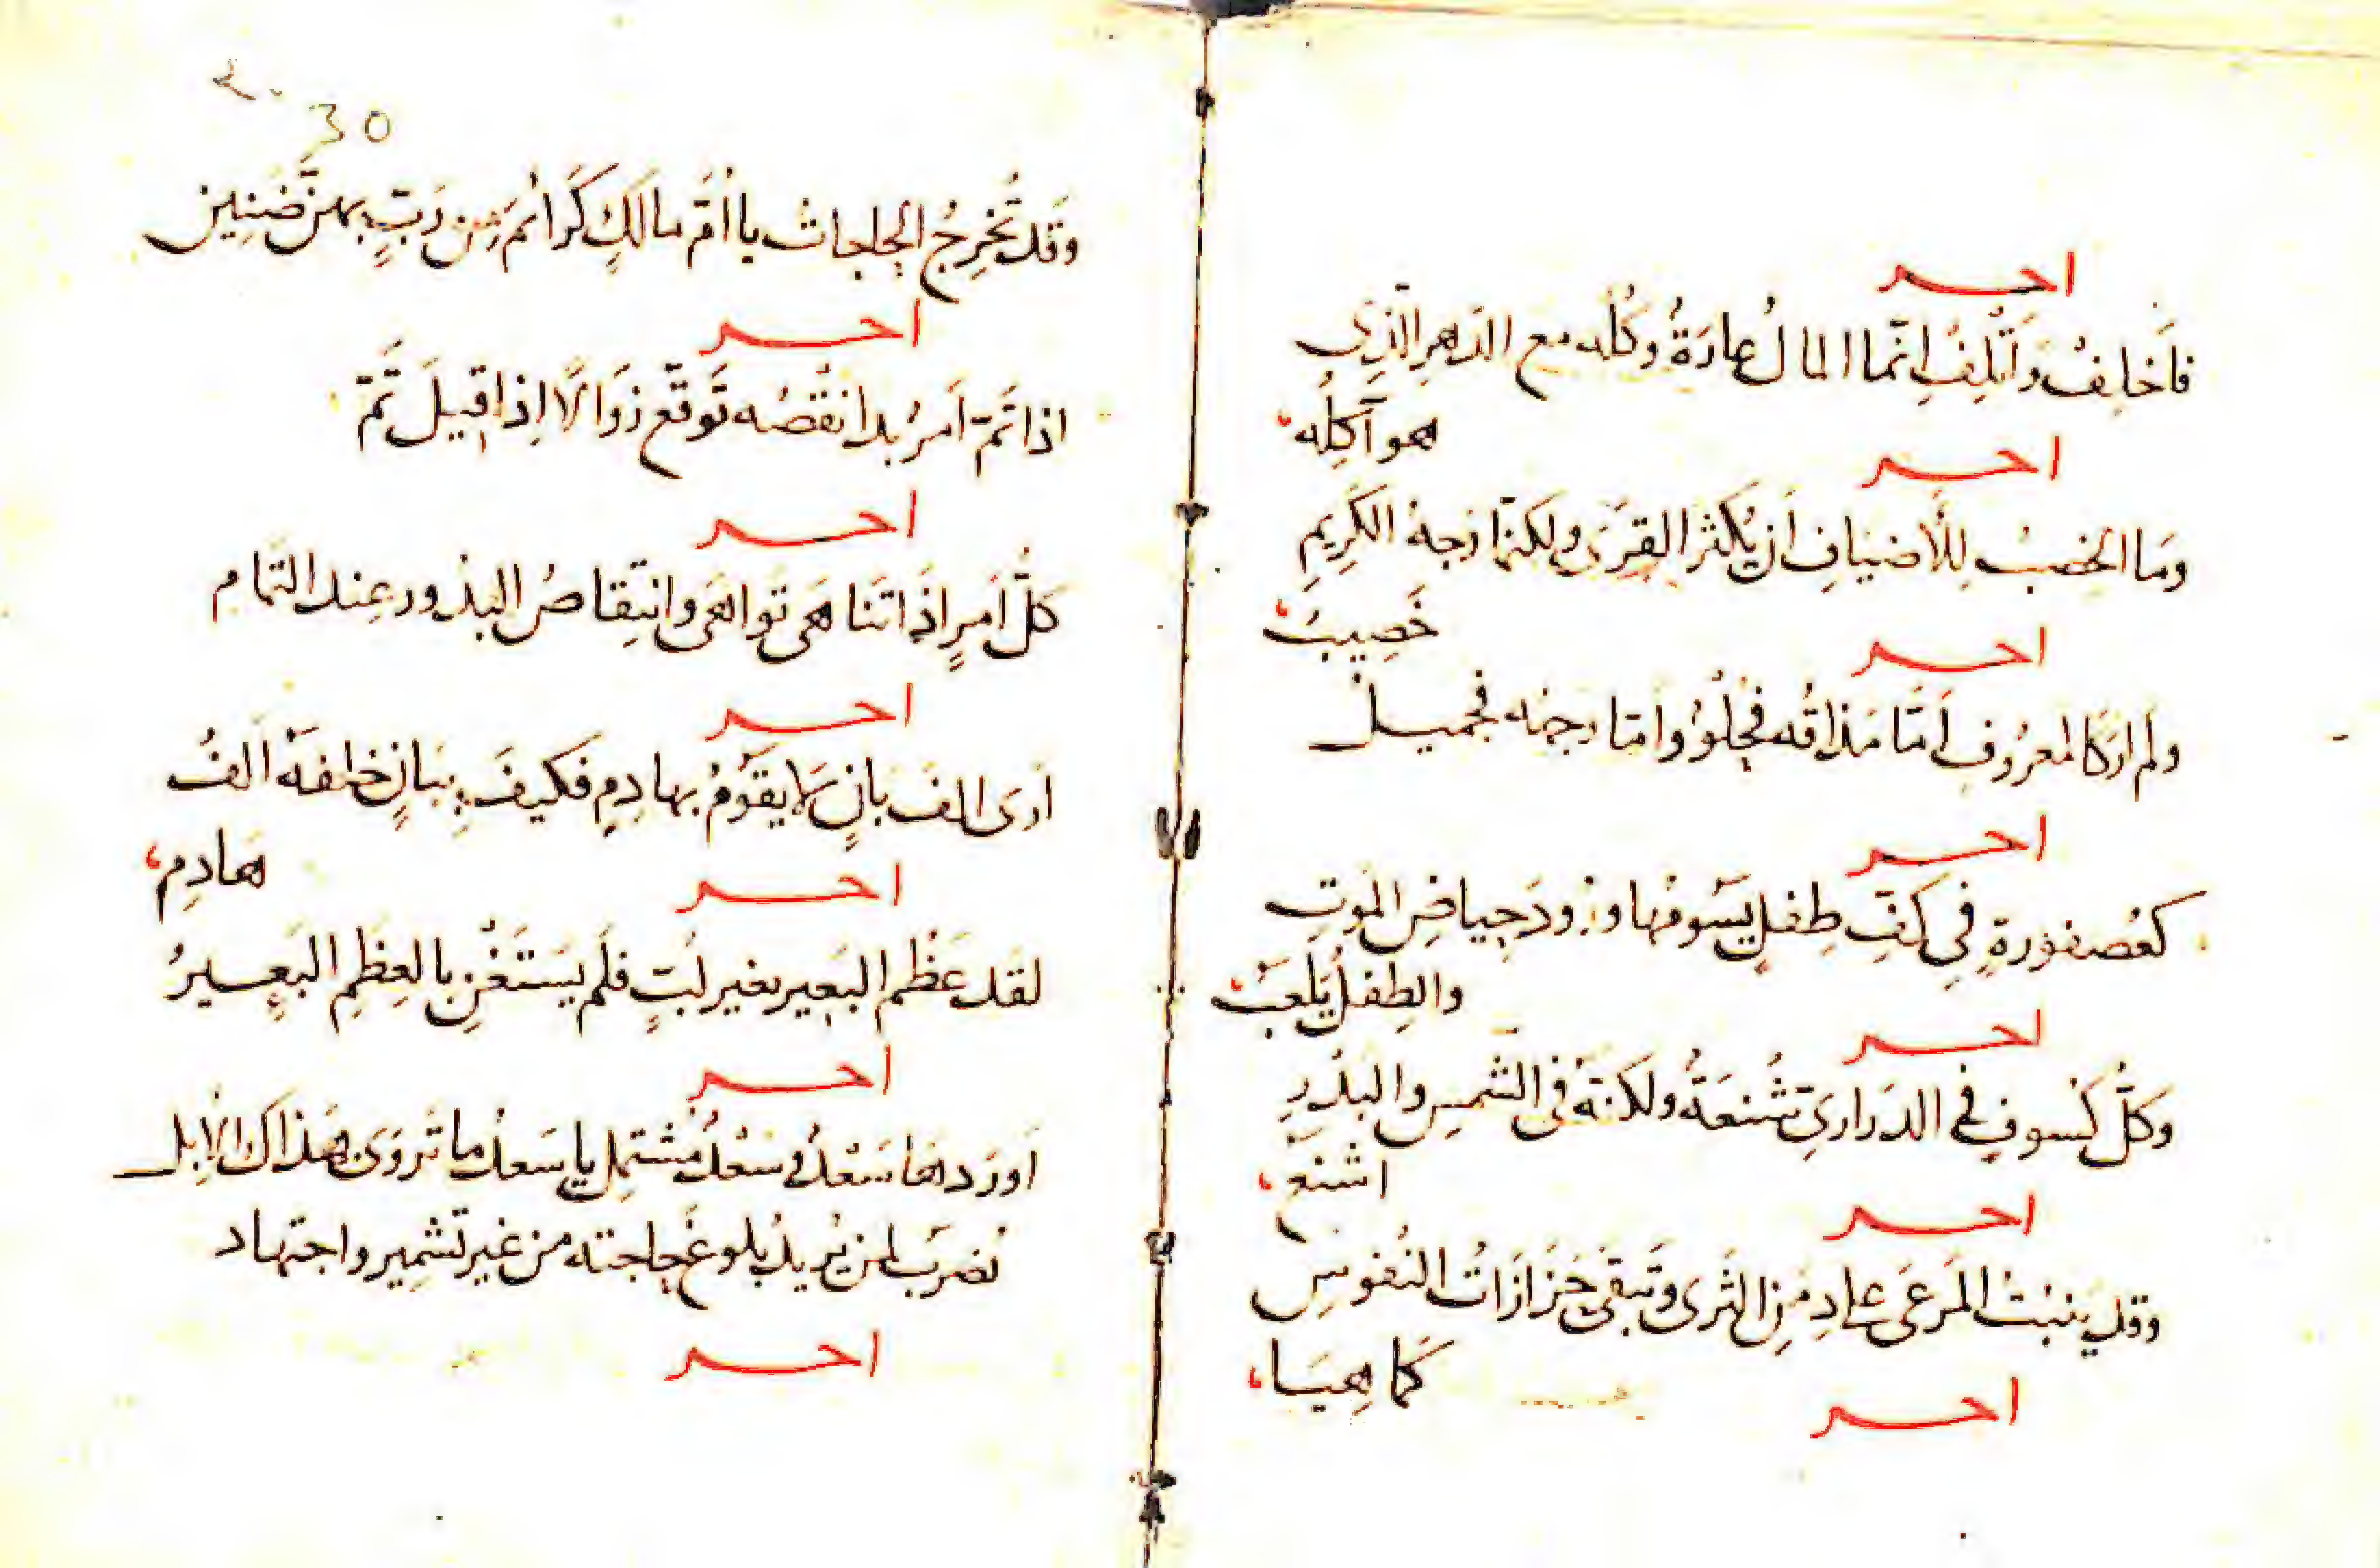 احسر
فَأَخلِفْ وَأَتْلِفْ اِنَّما المالُ عارَةٌ وكُلُّه مع الدَهرِ الَّذِى
هو آكِلُه،
احسر
وَما الخِصبُ لِلأَضيَافِ اَن يُكثَر القِرَى ولكنّما وَجهُ الكَرِيمِ
خَصِيبُ،
احسر
ولم اَرَ كَالمعرُوفِ اَمّا مَذاقُه فَحُلْوٌ وامّا وجهُه فجَميل
احسر
كعُصفُورةٍ فى كَفِّ طِفلٍ يَسُومُها ورودَ حِياضِ المَوتِ
والطِفلُ يَلعَبُ،
احسر
وكلُّ كُسوفٍ فى الدَرارىِ شُنعَةٌ ولكنّهُ فى الشَّمسِ والبَدْرِ
اشنَعُ،
احسر
وقد يَنبتُ المَرعَى على دِمَنِ الثَرى وتَبقَى حَزَازاتُ النُفوسِ
كَما هِيَا،
احسر
30
وَقد تُخرِجُ الحاجاتُ يا اُمَّ مالكٍ كَرَائمَ مِن رَبٍّ بهنّ ضَنِين
احسر
اذا تَمّ اَمرٌ بدا نقْصُه تَوقَّع زَوَالاً اِذا قيلَ تَمّ
احسر
كلُّ اَمرٍ اِذَا تَنَاهَى تَواهَى وانتِقاصُ البدُور عِند التَّمامِ
احسر
اَرَى الفَ بانٍ لا يقوُمُ بهادِمٍ فكيفَ بِبَانٍ خلفَهُ اَلفُ
هَادِمِ،
احسر
لقد عَظُم البَعِير بغير لُبٍّ فلَم يَستَغْنِ بالعِظَمِ البَعِيرُ
احسر
اَورَدهَا سَعْدٌ وسَعْدٌ مُشتمِل يا سَعدُ ما تُروَى بهَذاك الاِبل
تُضرَبُ لمن يُريدُ بلوغَ حاجته من غير تشمِير واجتهاد
احسر